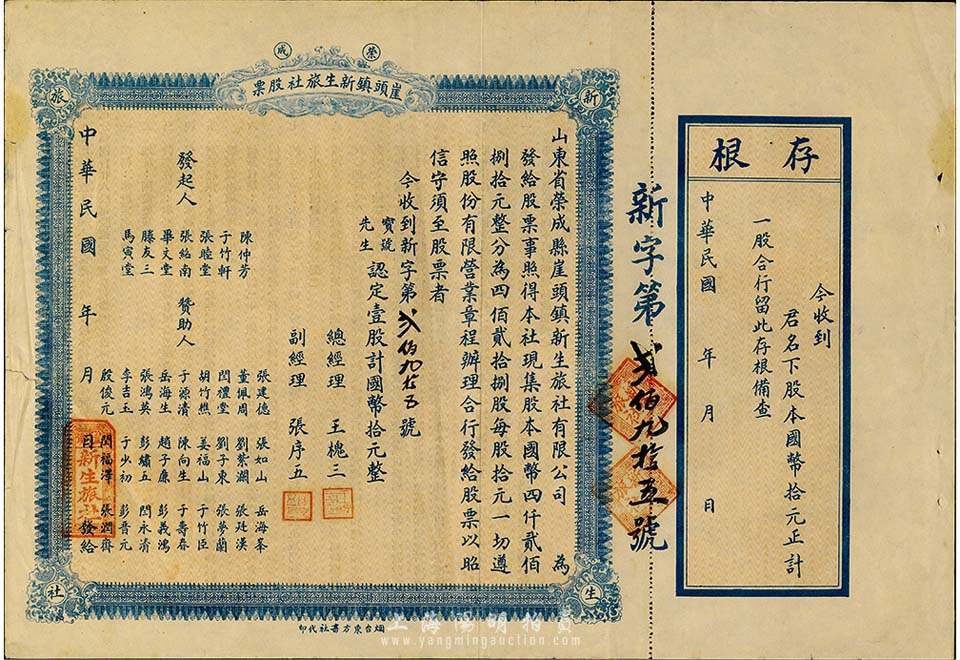 存根
今收到
君名下股本國幣拾元正計
一股合行留此存根備查
中華民國 年 月 日
新字第貳佰九拾五號
榮成
崖頭鎮新生旅社股票
新生旅社
山東省榮成縣崖頭鎮新生旅社有限公司 為
發給股票事照得本社現集股本國幣四仟貳佰
捌拾元整分為四佰貳拾捌股每股拾元一切遵
照股份有限營業章程辦理合行發給股票以昭
信守須至股票者
今收到新字第貳佰九拾五號
寶號
先生 認定壹股計國幣拾元整
總經理 王槐三
副經理 張序五
發起人
陳仲芳
于竹軒
張睦堂
張紹南
畢文堂
滕友三
馬寅堂
贊助人
張建德 張如山 岳海峯
董佩周 劉紫瀾 張廷漢
閆禮堂 劉子東 張夢蘭
胡竹樵 姜福山 于竹臣
于源清 陳向生 于壽春
岳海生 趙子廉 彭義鴻
張鴻英 彭繡五 閆永清
李吉玉 于少初 彭晉元
殷俊元 閆福澤 張潤齋
中華民國 年 月 日 發給
新生旅社
烟台東方書社代印
上海陽明拍賣
www.yangmingauction.com